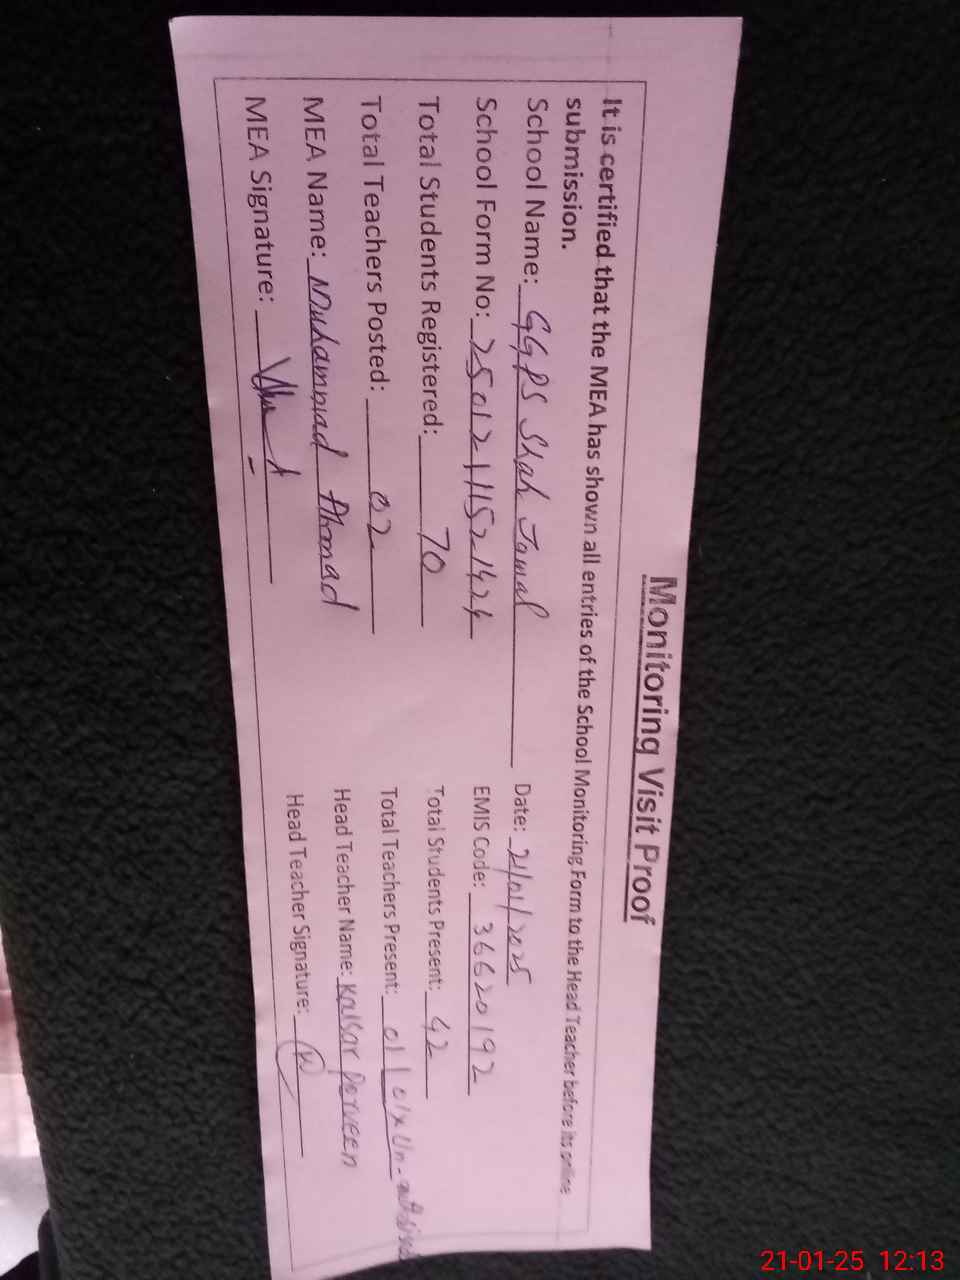 Monitoring Visit Proof
It is certified that the MEA has shown all entries of the School Monitoring Form to the Head Teacher before its online
submission.
School Name: GGPS Shah Jamal
Date: 21/01/2025
School Form No: 25012111521424
EMIS Code: 36620192
Total Students Registered: 70
Total Students Present: 42
Total Teachers Posted: 02
Total Teachers Present: 01 | 01x Un-
MEA Name: Muhammad Ahmad
Head Teacher Name: Kalsar Perveen
MEA Signature:
Head Teacher Signature:
21-01-25 12:13